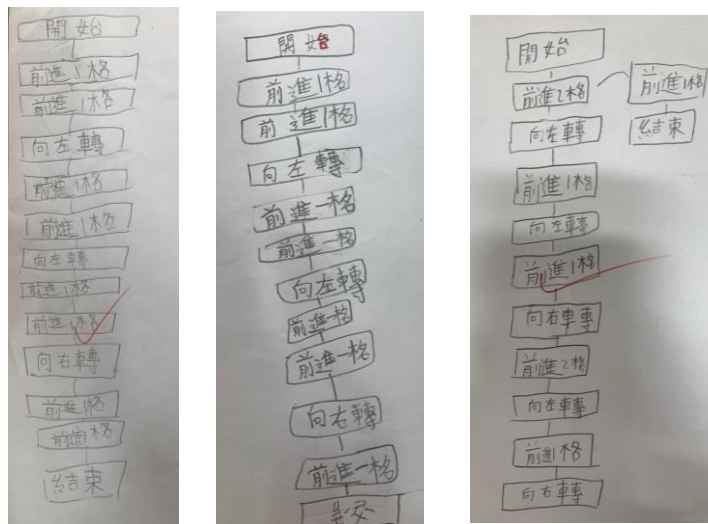 開始
前進1格
前進1格
向左轉
前進1格
前進1格
向左轉
前進1格
前進1格
向右轉
前進1格
前進格
結束
開始
前進1格
前進1格
向左轉
前進一格
前進一格
向左轉
前進一格
前進一格
向右轉
前進一格
開始
前進2格
向左轉
前進1格
向左轉
前進1格
向右轉
前進2格
向左轉
前進1格
向右轉
前進1格
結束